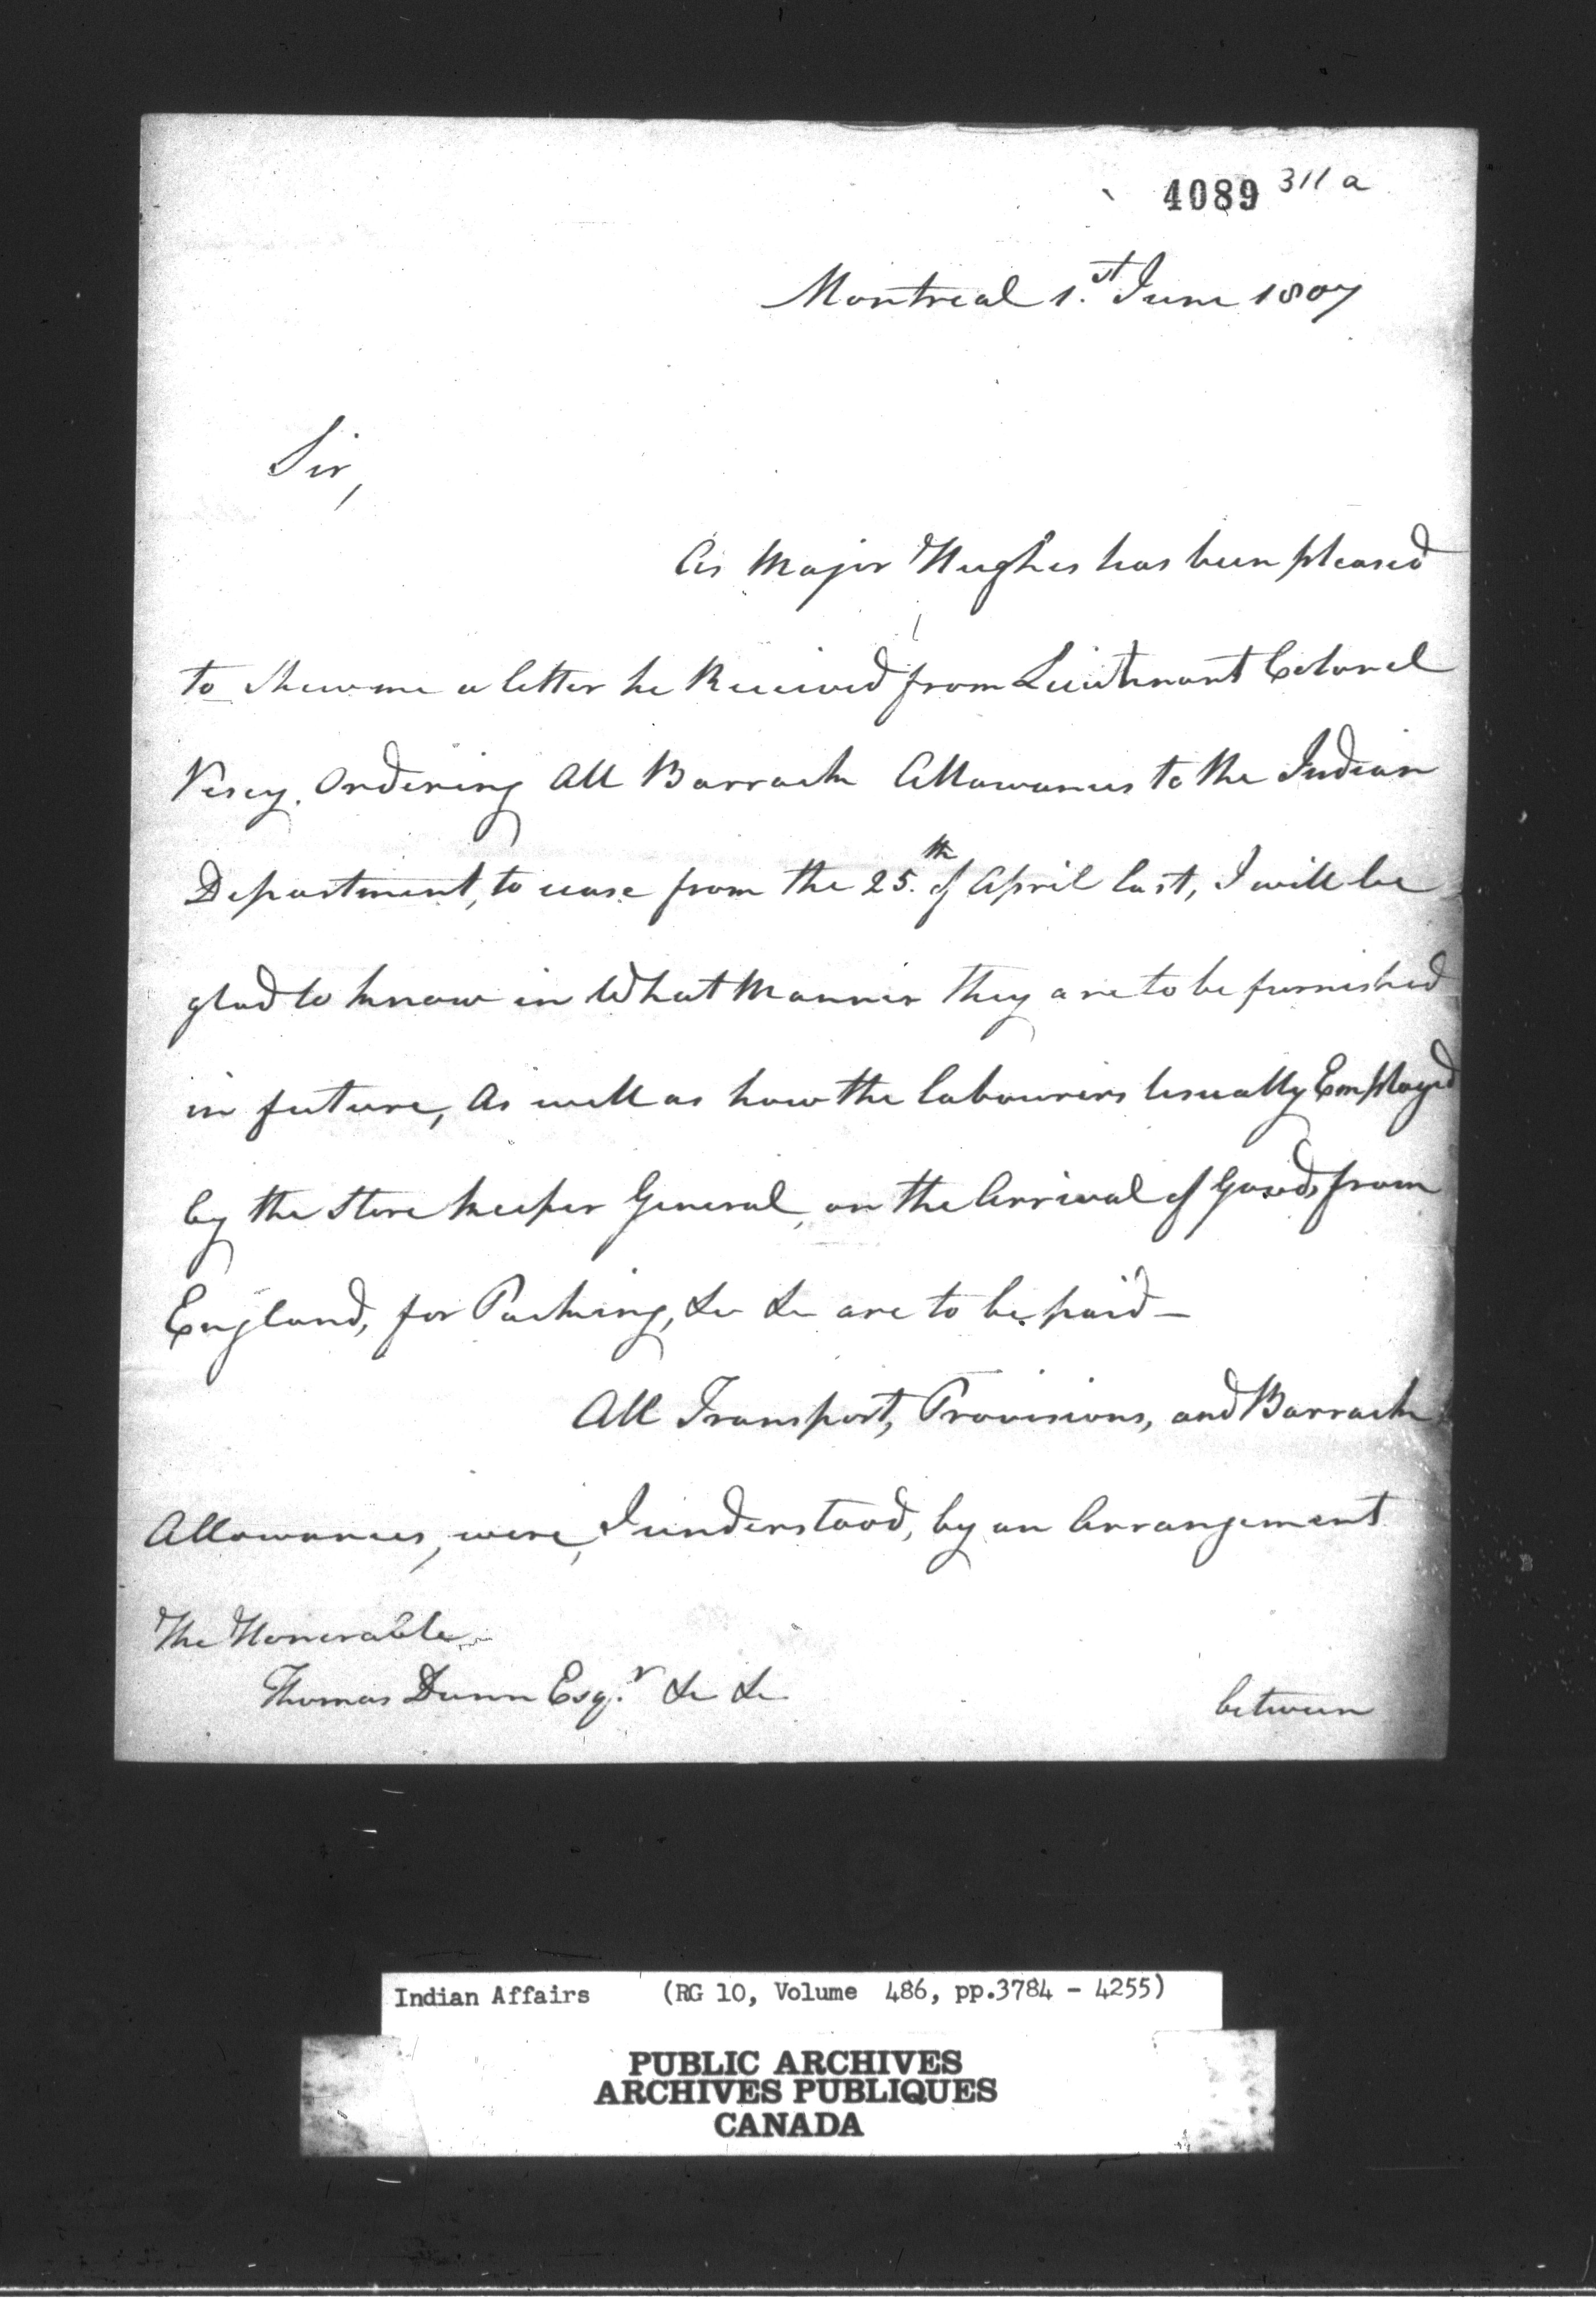 4089 311 a
Montreal 1.st June 1807
Sir,
As Major Hughes has been pleased
to shew me a letter he Received from Lieutenant Colonel
Vesey. Ordering All Barrack Allowances to the Indian
Department, to cease from the 25.th of April last, I will be
glad to know in What Manner they are to be furnished
in future, As well as how the labourers Usually Employed
by the Store keeper General, on the Arrival of Goods from
England, for Packing, &c &c are to be paid —
All Transport, Provisions, and Barrack
Allowances, were, I understood, by an Arrangement
The Honorable
Thomas Dunn Esq.r &c &c
between
Indian Affairs (RG 10, Volume 486, pp.3784 - 4255)
PUBLIC ARCHIVES
ARCHIVES PUBLIQUES
CANADA